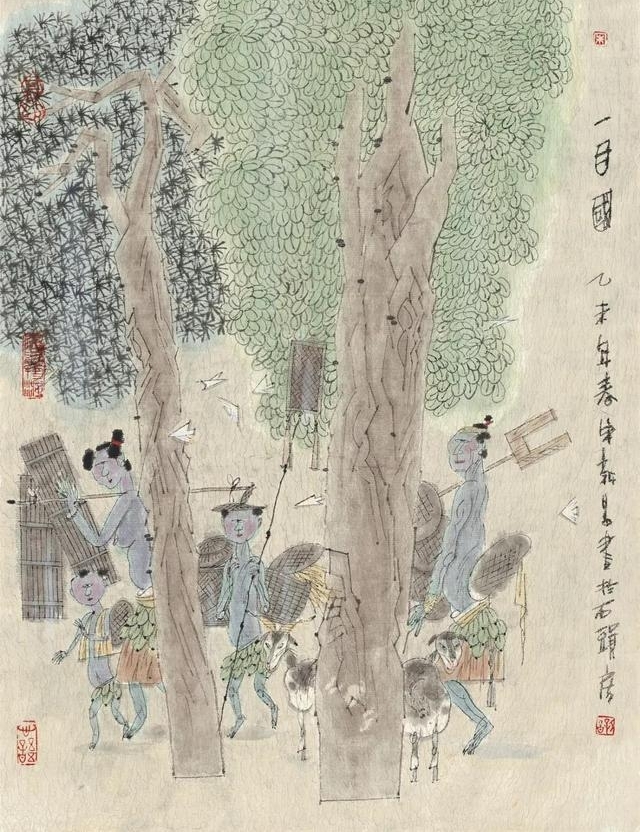 一目國 乙未年春朱新昌畫於石頭房